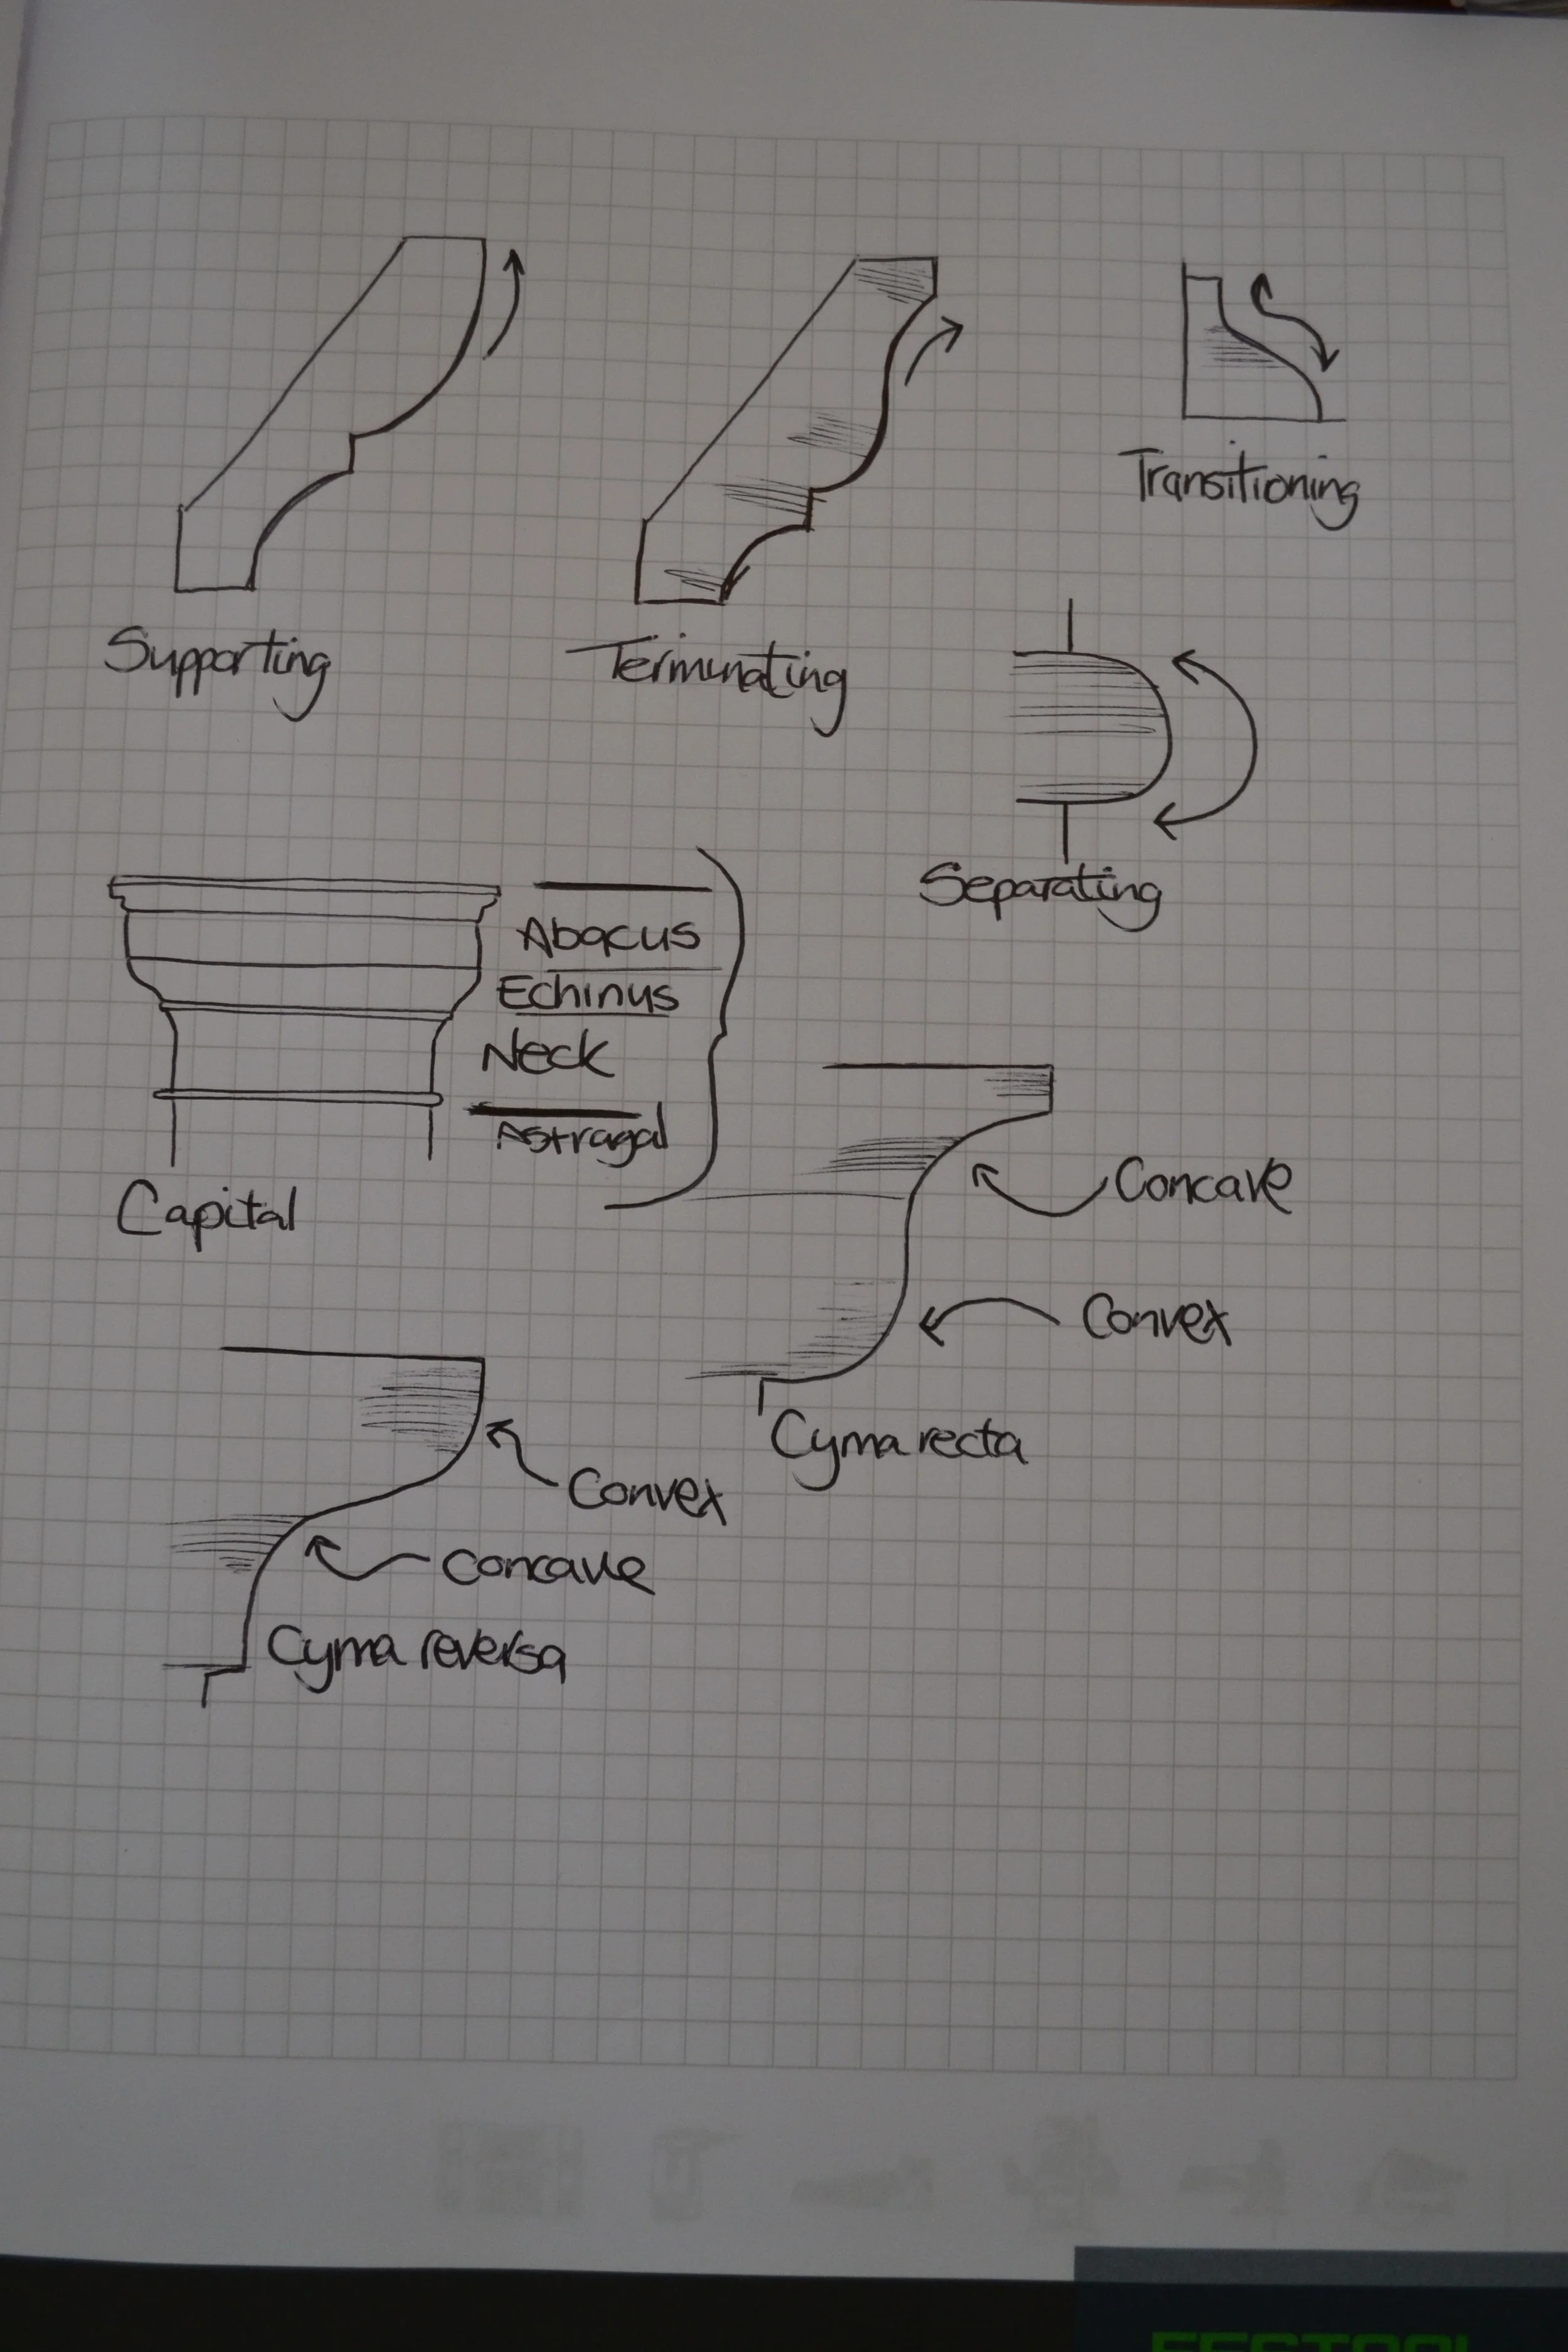 Supporting
Terminating
Transitioning
Separating
Abacus
Echinus
Neck
Astragal
Capital
Concave
Convex
Cyma recta
Convex
Concave
Cyma reversa
FESTOOL